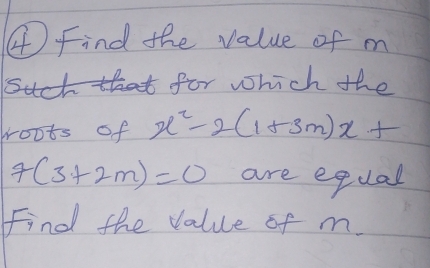 ④ Find the value of m
Such that for which the
roots of x²-2(1+3m)x +
7(3+2m)=0 are equal
Find the value of m.